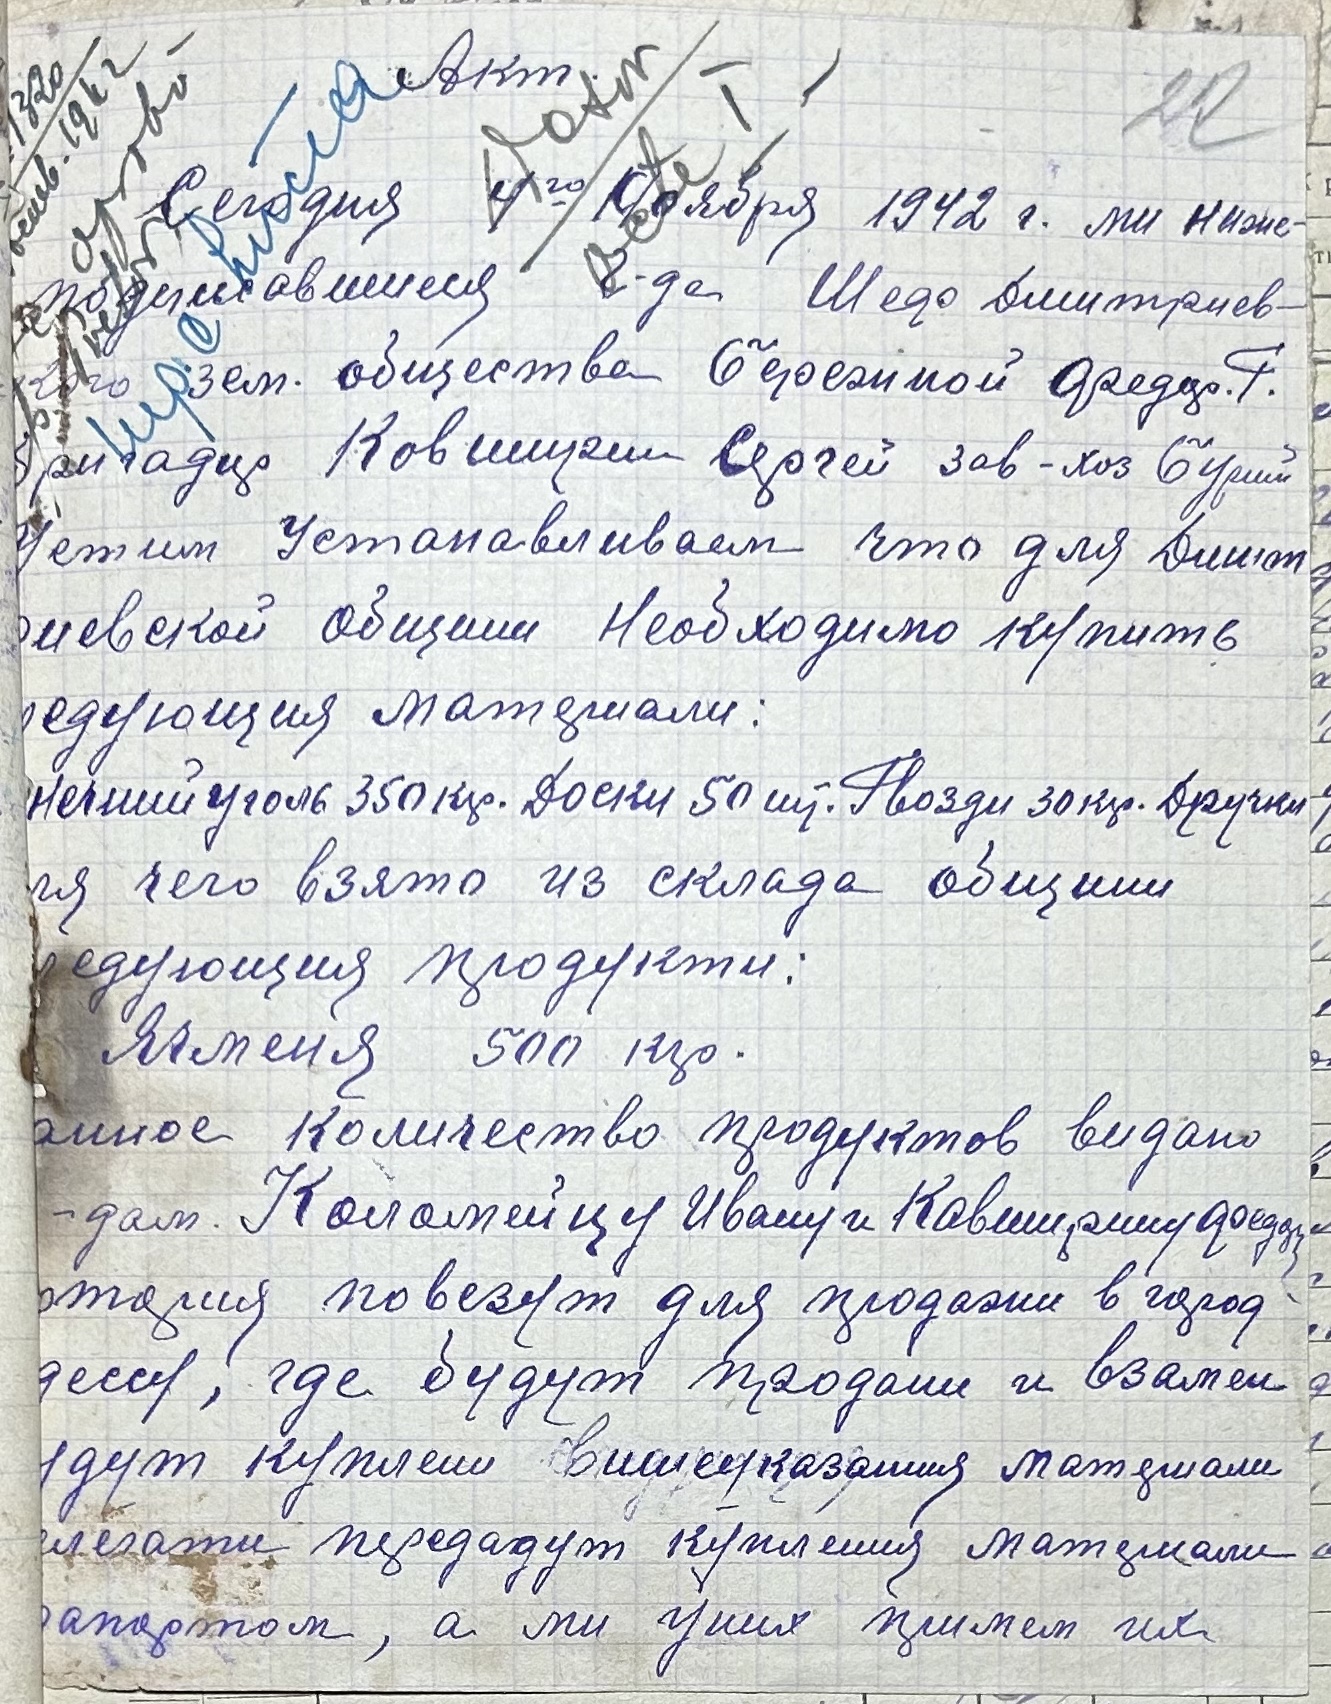 Акт.
22
Сегодня 4го Ноября 1942 г. ми ниже-
подписавшиеся Шеф Дмитриев-
ского зем. общества Бережной Федор. Г.
Бригадир Ковширин Сергей зав-хоз Бурий
Устин Устанавливаем что для Дмит
риевской общини Необходимо купить
ледующия материали:
менний уголь 350 кгр. Доски 50 шт. Гвозди 30 кгр. Дручки
ля чего взято из склада общини
ледующия продукти:
Ячменя 500 кгр.
анное количество продуктов видано
-дам. Коломейцу Ивану и Кавширину Федору
отория повезут для продажи в город
дессу, где будут продани и взамен
удут куплени вишеуказания материали
елегати передадут купления материали
рапортом, а ми у них примем их